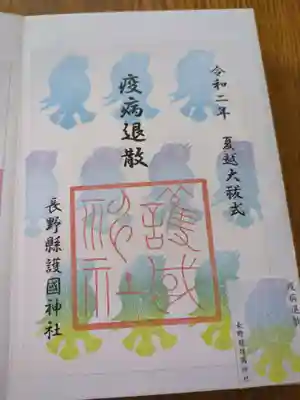 令和二年 夏越大祓式
疫病退散
長野縣護國神社
護國神社
疫病退散
長野縣護國神社